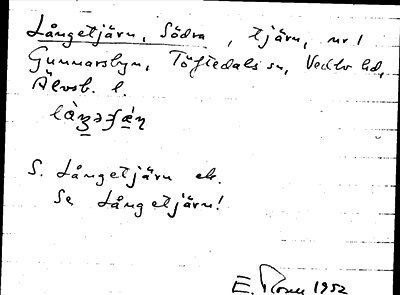 Långetjärn, Södra, tjärn, nr 1
Gunnarsbyn, Töftedals sn, Vedbo hd,
Älvsb. l.
S. Långetjärn ek.
Se Långetjärn!
E. 1952